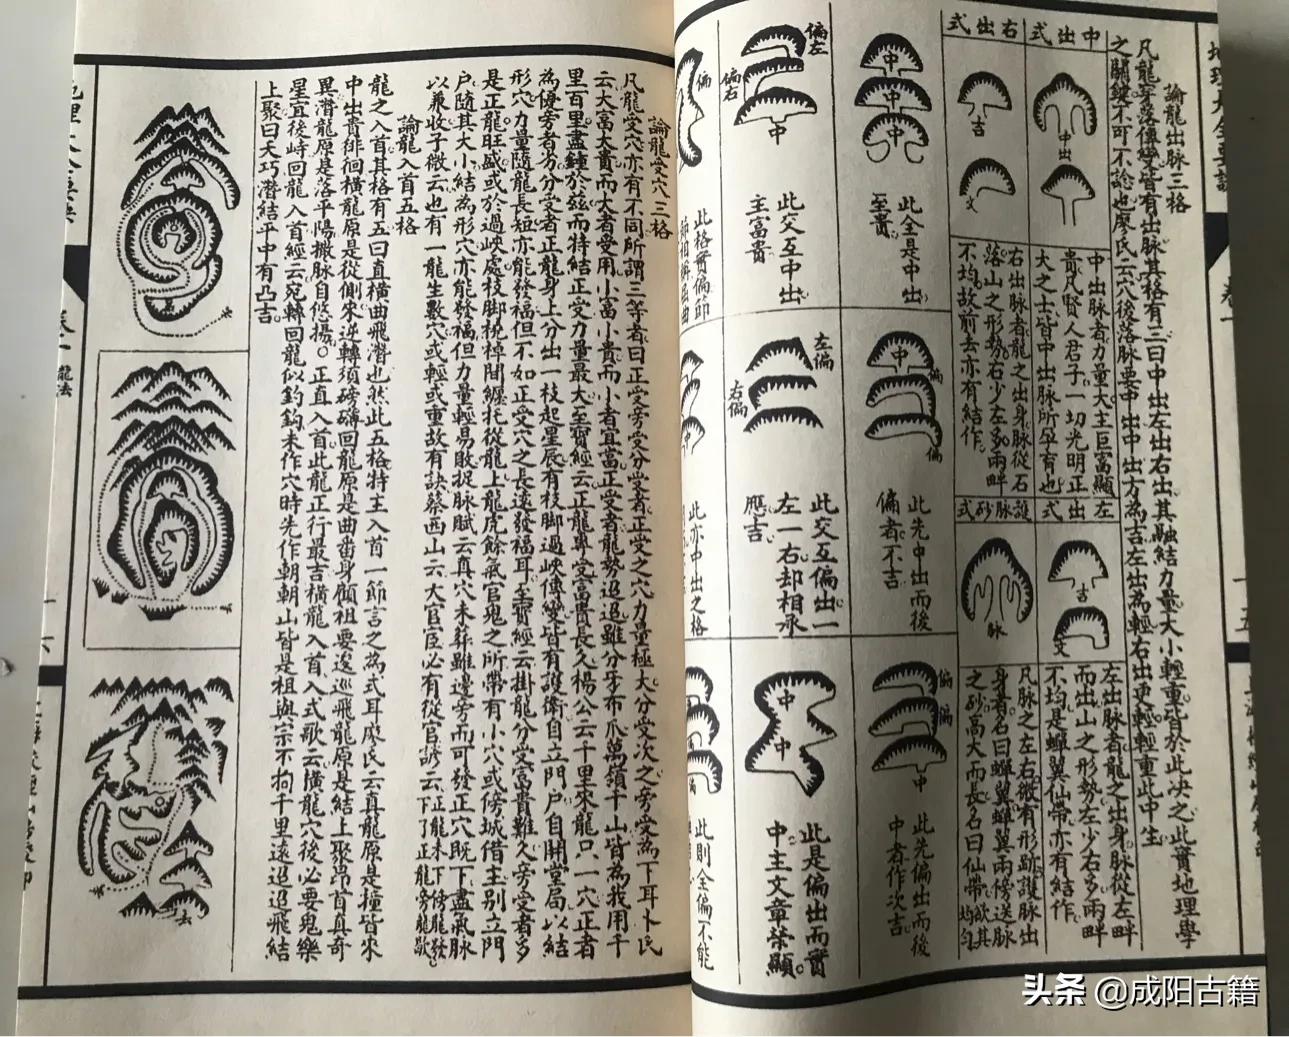 地理大全要訣
卷一
論龍出脉三格
凡龍穿落傳變皆有出脉其格有三曰中出左出右出其融結力量大小輕重皆於此决之此實地理學
之關鍵不可不諗也廖氏云穴後落脉要中出中出方為吉左出為輕右出更輕輕重此中生
中出式
中出
中出脉者力量大主巨富顯
貴凡賢人君子一切光明正
大之士皆中出脉所孕育也
右出式
吉
右出脉者龍之出身脉從右
落山之形勢右少左多兩畔
不均故前去亦有結作
左出式
吉
左出脉者龍之出身脉從左畔
而出山之形勢左少右多兩畔
不均是蟬翼仙帶亦有結作
護脉砂式
脉
凡脉之左右微有形跡護脉出
身者名曰蟬翼蟬翼兩傍送脉
之砂高大而長名曰仙帶欲其
均匀
中
中
中
此全是中出
至貴
中
偏
偏
此先中出而後
偏者不吉
偏
偏
中
此先偏出而後
中者作次吉
偏左
偏右
中
此交互中出
主富貴
左偏
右偏
此交互偏出一
左一右却相承
應吉
中
中
此是偏出而實
中主文章榮顯
偏
此格實偏節
中
此亦中出之格
偏
此則全偏不能
論龍受穴三格
凡龍受穴亦有不同所謂三等者曰正受旁受分受者正受之穴力量極大分受次之旁受為下耳卜氏
云大富大貴而大者受用小富小貴而小者宜當正受者龍勢迢迢雖分牙布爪萬嶺千山皆為我用千
里百里盡鍾於兹而特結正受力量最大至寶經云正龍專受富貴長久楊公云千里來龍只一穴正者
為優旁者劣分受者正龍身上分出一枝起星辰有枝脚過峽傳變皆有護衛自立門户自開堂局以結
形穴力量隨龍長短亦能發福但不如正受穴之長遠發福耳至寶經云掛龍分受富貴難久旁受者多
是正龍旺盛或於過峽處枝脚橈棹間纏托從龍上龍虎餘氣官鬼之所帶有小穴或傍城借主别立門
户隨其大小結為形穴亦能發福但力量輕易敗捉脉賦云真穴未葬雖邊旁而可發正穴既下盡氣脉
以兼收子微云也有一龍生數穴或輕或重故有訣蔡西山云大官宦必有從官諺云正龍未下傍龍發
下了正龍旁龍歇
論龍入首五格
龍之入首其格有五曰直横曲飛潛也然此五格特主入首一節言之為式耳廖氏云真龍原是撞皆來
中出貴徘徊横龍原是從側來逆轉須磅礴回龍原是曲番身顧祖要逡巡飛龍原是結上聚昂首真奇
異潛龍原是落平陽撒脉自悠揚。正直入首此龍正行最吉横龍入首入式歌云横龍穴後必要鬼樂
星宜後峙回龍入首經云宛轉回龍似釣鉤未作穴時先作朝朝山皆是祖與宗不拘千里遠迢迢飛結
上聚曰天巧潛結平中有凸吉
去
卷一 龍法
头条 @成阳古籍